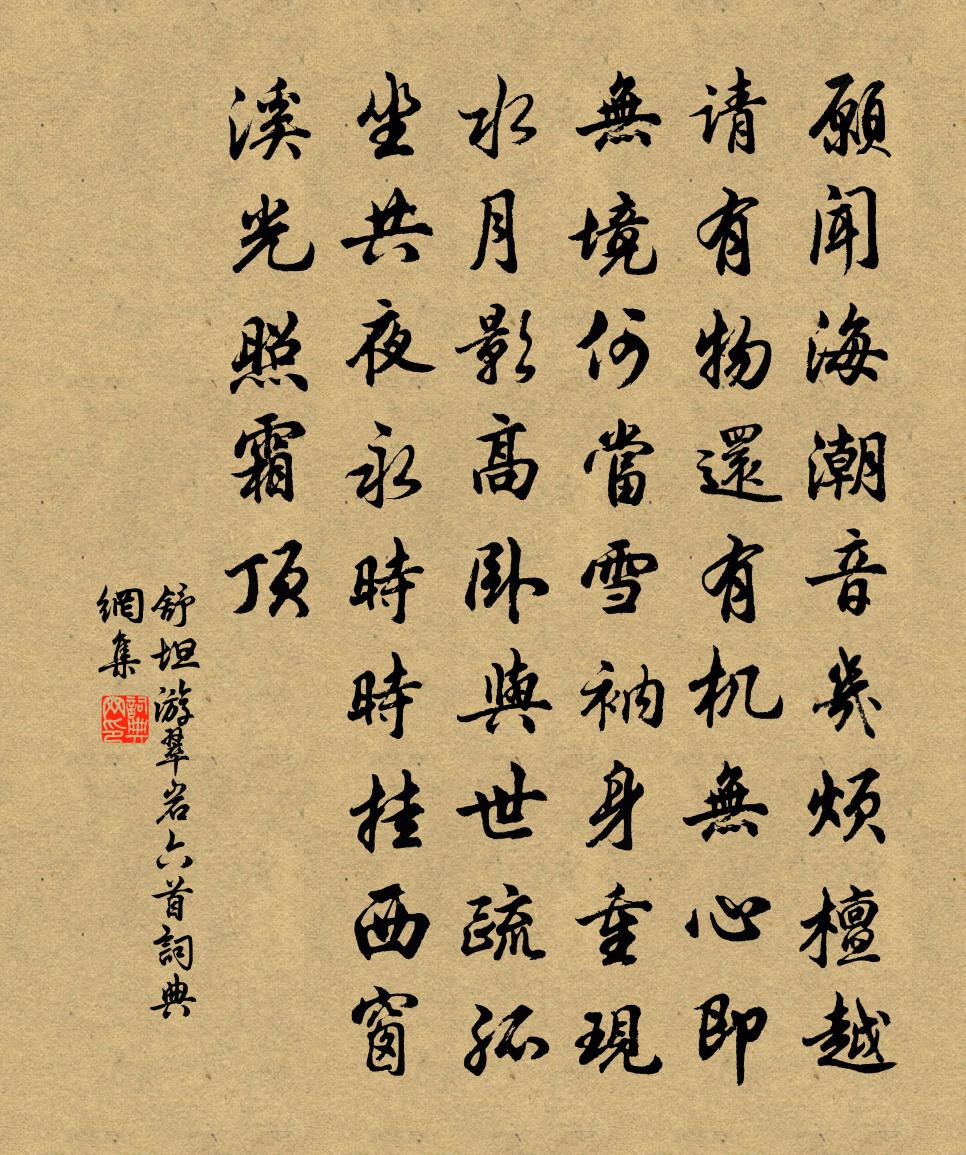 願闻海潮音幾煩檀越
请有物還有机無心即
無境何當雪衲身重現
水月影高卧與世疏孤
坐共夜永時時挂西窗
溪光照霜顶
舒坦游翠岩六首詞典
網集
詞典网印